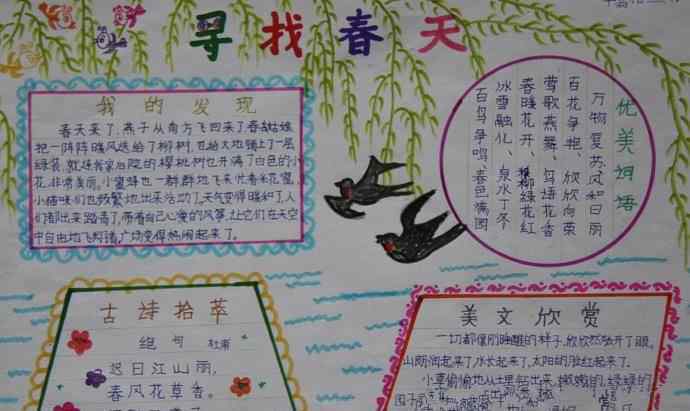 寻找春天
我的发现
春天来了,燕子从南方飞回来了,春姑娘
把一阵阵暖风送给了柳树,也给大地铺上了一层
绿装,就连我家后院的樱桃树也开满了白色的小
花,非常美丽。小蜜蜂也一群群地飞来忙着采花蜜,
小猫咪们也频繁地出来活动了,天气变得暖和了,人
们都出来踏青了,带着自己心爱的风筝,让它们在天空
中自由地飞翔着,广场变得热闹起来了。
优美词语
万物复苏、风和日丽
百花争艳、欣欣向荣
莺歌燕舞、鸟语花香
春暖花开、柳绿花红
冰雪融化、泉水丁冬
百鸟争鸣、春色满园
古诗拾萃
绝句 杜甫
迟日江山丽,
春风花草香。
美文欣赏
一切都像刚睡醒的样子,欣欣然张开了眼。
山朗润起来了,水长起来了,太阳的脸红起来了。
小草偷偷地从土里钻出来,嫩嫩的,绿绿的